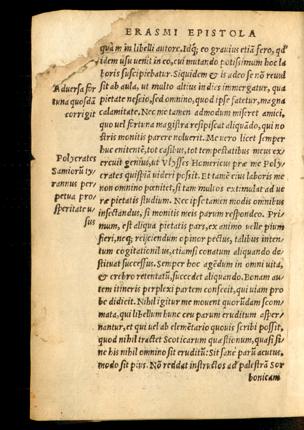 ERASMI EPISTOLA
quàm in libelli autore. Idq́; eo grauius etiã fero, qđ
idem usu uenit in eo, cui mutando potissimum hoc la
boris suscipiebatur. Siquidem & is adeo se nõ reuul
sit ab aula, ut multo altius in dies immergatur, qua
pietate nescio, sed omnino, quod ipse fatetur, magna
calamitate. Nec me tamen admodum miseret amici,
quo uel fortuna magistra resipiscat aliquãdo, qui no
stris monitis parere noluerit. Me uero licet semper
huc enitentẽ, tot casibus, tot tempestatibus meus ex-
ercuit genius, ut Vlysses Homericus præ me Poly-
crates quispiã uideri possit. Et tamẽ eius laboris me
non omnino pœnitet, si tam multos extimulat ad ue
ræ pietatis studium. Nec ipse tamen modis omnibus
insectandus, si monitis meis parum respondeo. Pri
mum, est aliqua pietatis pars, ex animo uelle pium
fieri, necq; reijciendum opinor pectus, talibus inten
tum cogitationibus, etiamsi conatum aliquando de-
stituat successus. Semper hoc agẽdum in omni uita,
& crebro retentatũ, succedet aliquando. Bonam au-
tem itineris perplexi partem confecit, qui uiam pro
be didicit. Nihil igitur me mouent quorũdam scom
mata, qui libellum hunc ceu parum eruditum asper-
nantur, et qui uel ab elemẽtario quouis scribi possit,
quod nihil tractet Scoticarum quæstionum, quasi si-
ne his nihil omnino sit eruditũ: Sit sanè parũ acutus,
modo sit pius. Nõ reddat instructos ad palæstrã Sor
bonicam
Aduersa for
tuna quosdã
corrigit
Polycrates
Samiorũ ty
rannus per-
petua pro-
speritate u-
sus